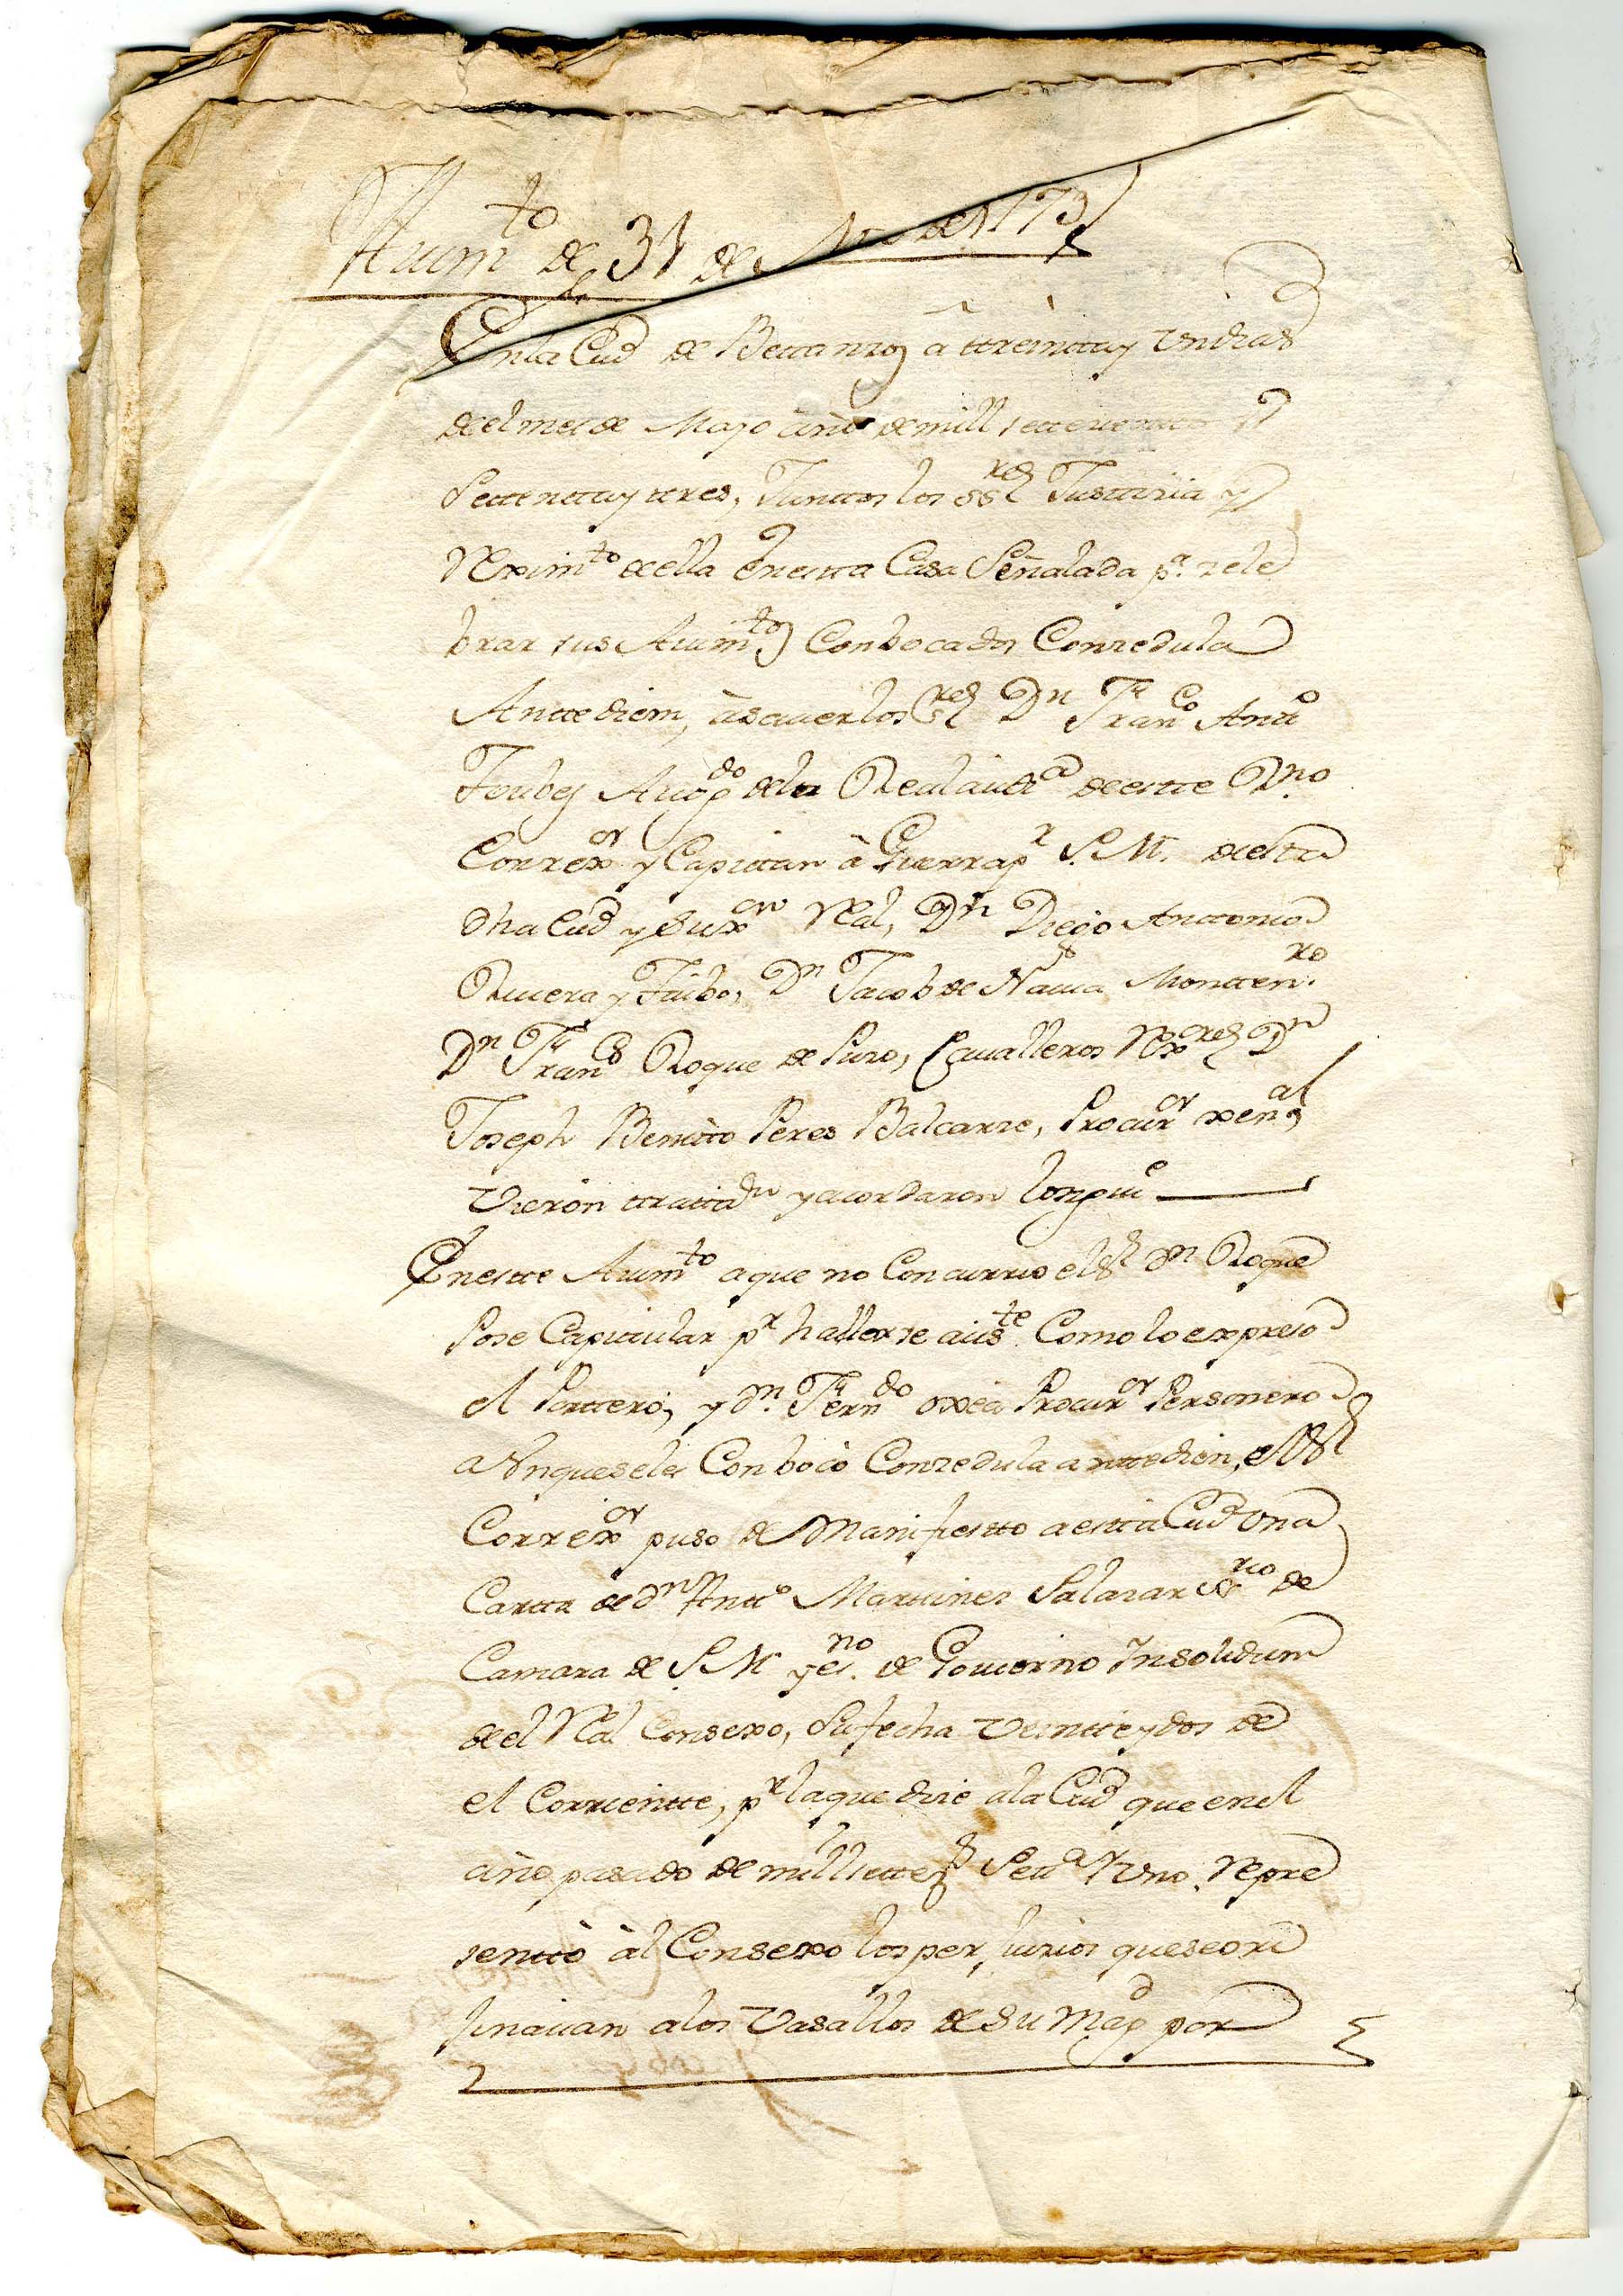 Aiumto de 31 de de 1773
En la Ciud de Bettanzos â ttreintta y Un dias
de el mes de Mayo año de mill settecienttos
Settentta y ttres, Junttos los SSres Justtizia y
Reximto de ella En estta Casa Señalada pa. zele
brar sus Aiumtos Conbocados Con zedula
Antte diem, â saver los Sres Dn Franco Antto
Abogdo de la Real audа de estte Rno
Correxor y Capittan â Guerra pr S.M. de esta
dha Ciud y su xon Real, Dn Diego Anttonio
Rivera y Taibo, Dn Jacob de Nava Montten.ro
Dn Franco Roque de Puzo, Cavalleros Rexores Dn
Joseph Benitto Perez Balcarze, Procuror xenal
Vieron ttrattaron y acordaron lo sigue
En estte Aiumto a que no Concurrio el Sr Dn Roque
Pose Capitular pr hallarse auste. Como lo expreso
el Porttero, y Dn. Ferndo oxea Procuror Personero
a Unque se les Conbocò Con zedula antte dien, el Sr
Correxor puso de Manifiestto a estta Ciud Una
Cartta de Dn Antto Marttinez Salazar Srio de
Camara de S.M. y esno. de Govierno Insolidum
de el Real Consexo, Su fecha Veintte y dos de
el Corrientte, pr la que dize a la Ciud que en el
año pasado de mill settezs Setta y Uno, Repre
senttò âl Consexo los perjuizios que se ori
jinavan a los Vasallos de Su Magd por